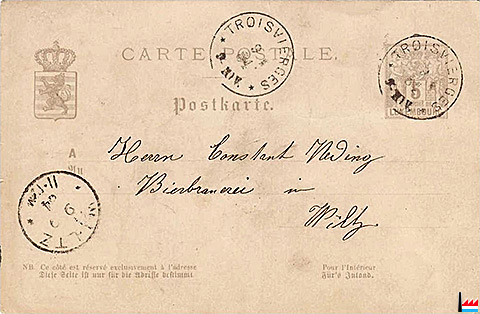 CARTE POSTALE.
* TROISVIERGES *
* TROISVIERGES *
5
LUXEMBOURG
Postkarte.
A
Herrn Constant Neding
Bierbrauerei in
Wiltz
WILTZ
NB Ce côté est réservé exclusivement à l'adresse
Diese Seite ist nur für die Adresse bestimmt
Pour l'Intérieur
Für's Inland.